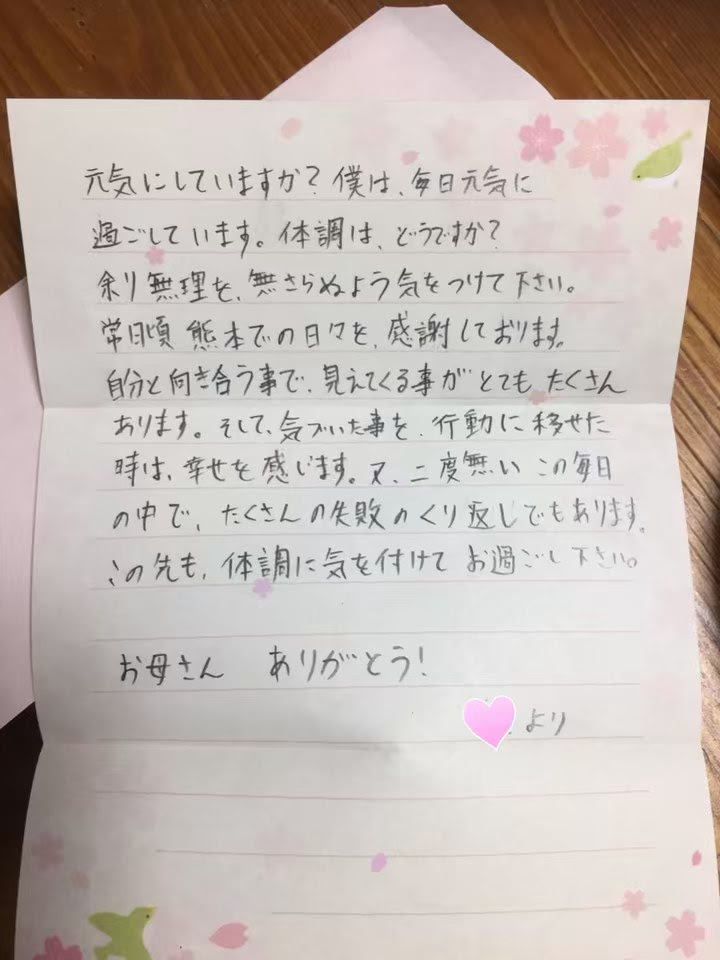 元気にしていますか？僕は、毎日元気に
過ごしています。体調は、どうですか？
余り無理を、無さらぬよう気をつけて下さい。
常日頃 熊本での日々を、感謝しております。
自分と向き合う事で、見えてくる事がとてもたくさん
あります。そして、気づいた事を、行動に移せた
時は、幸せを感じます。又、二度無いこの毎日
の中で、たくさんの失敗のくり返しでもあります。
この先も、体調に気を付けてお過ごし下さい。
お母さん ありがとう！
より